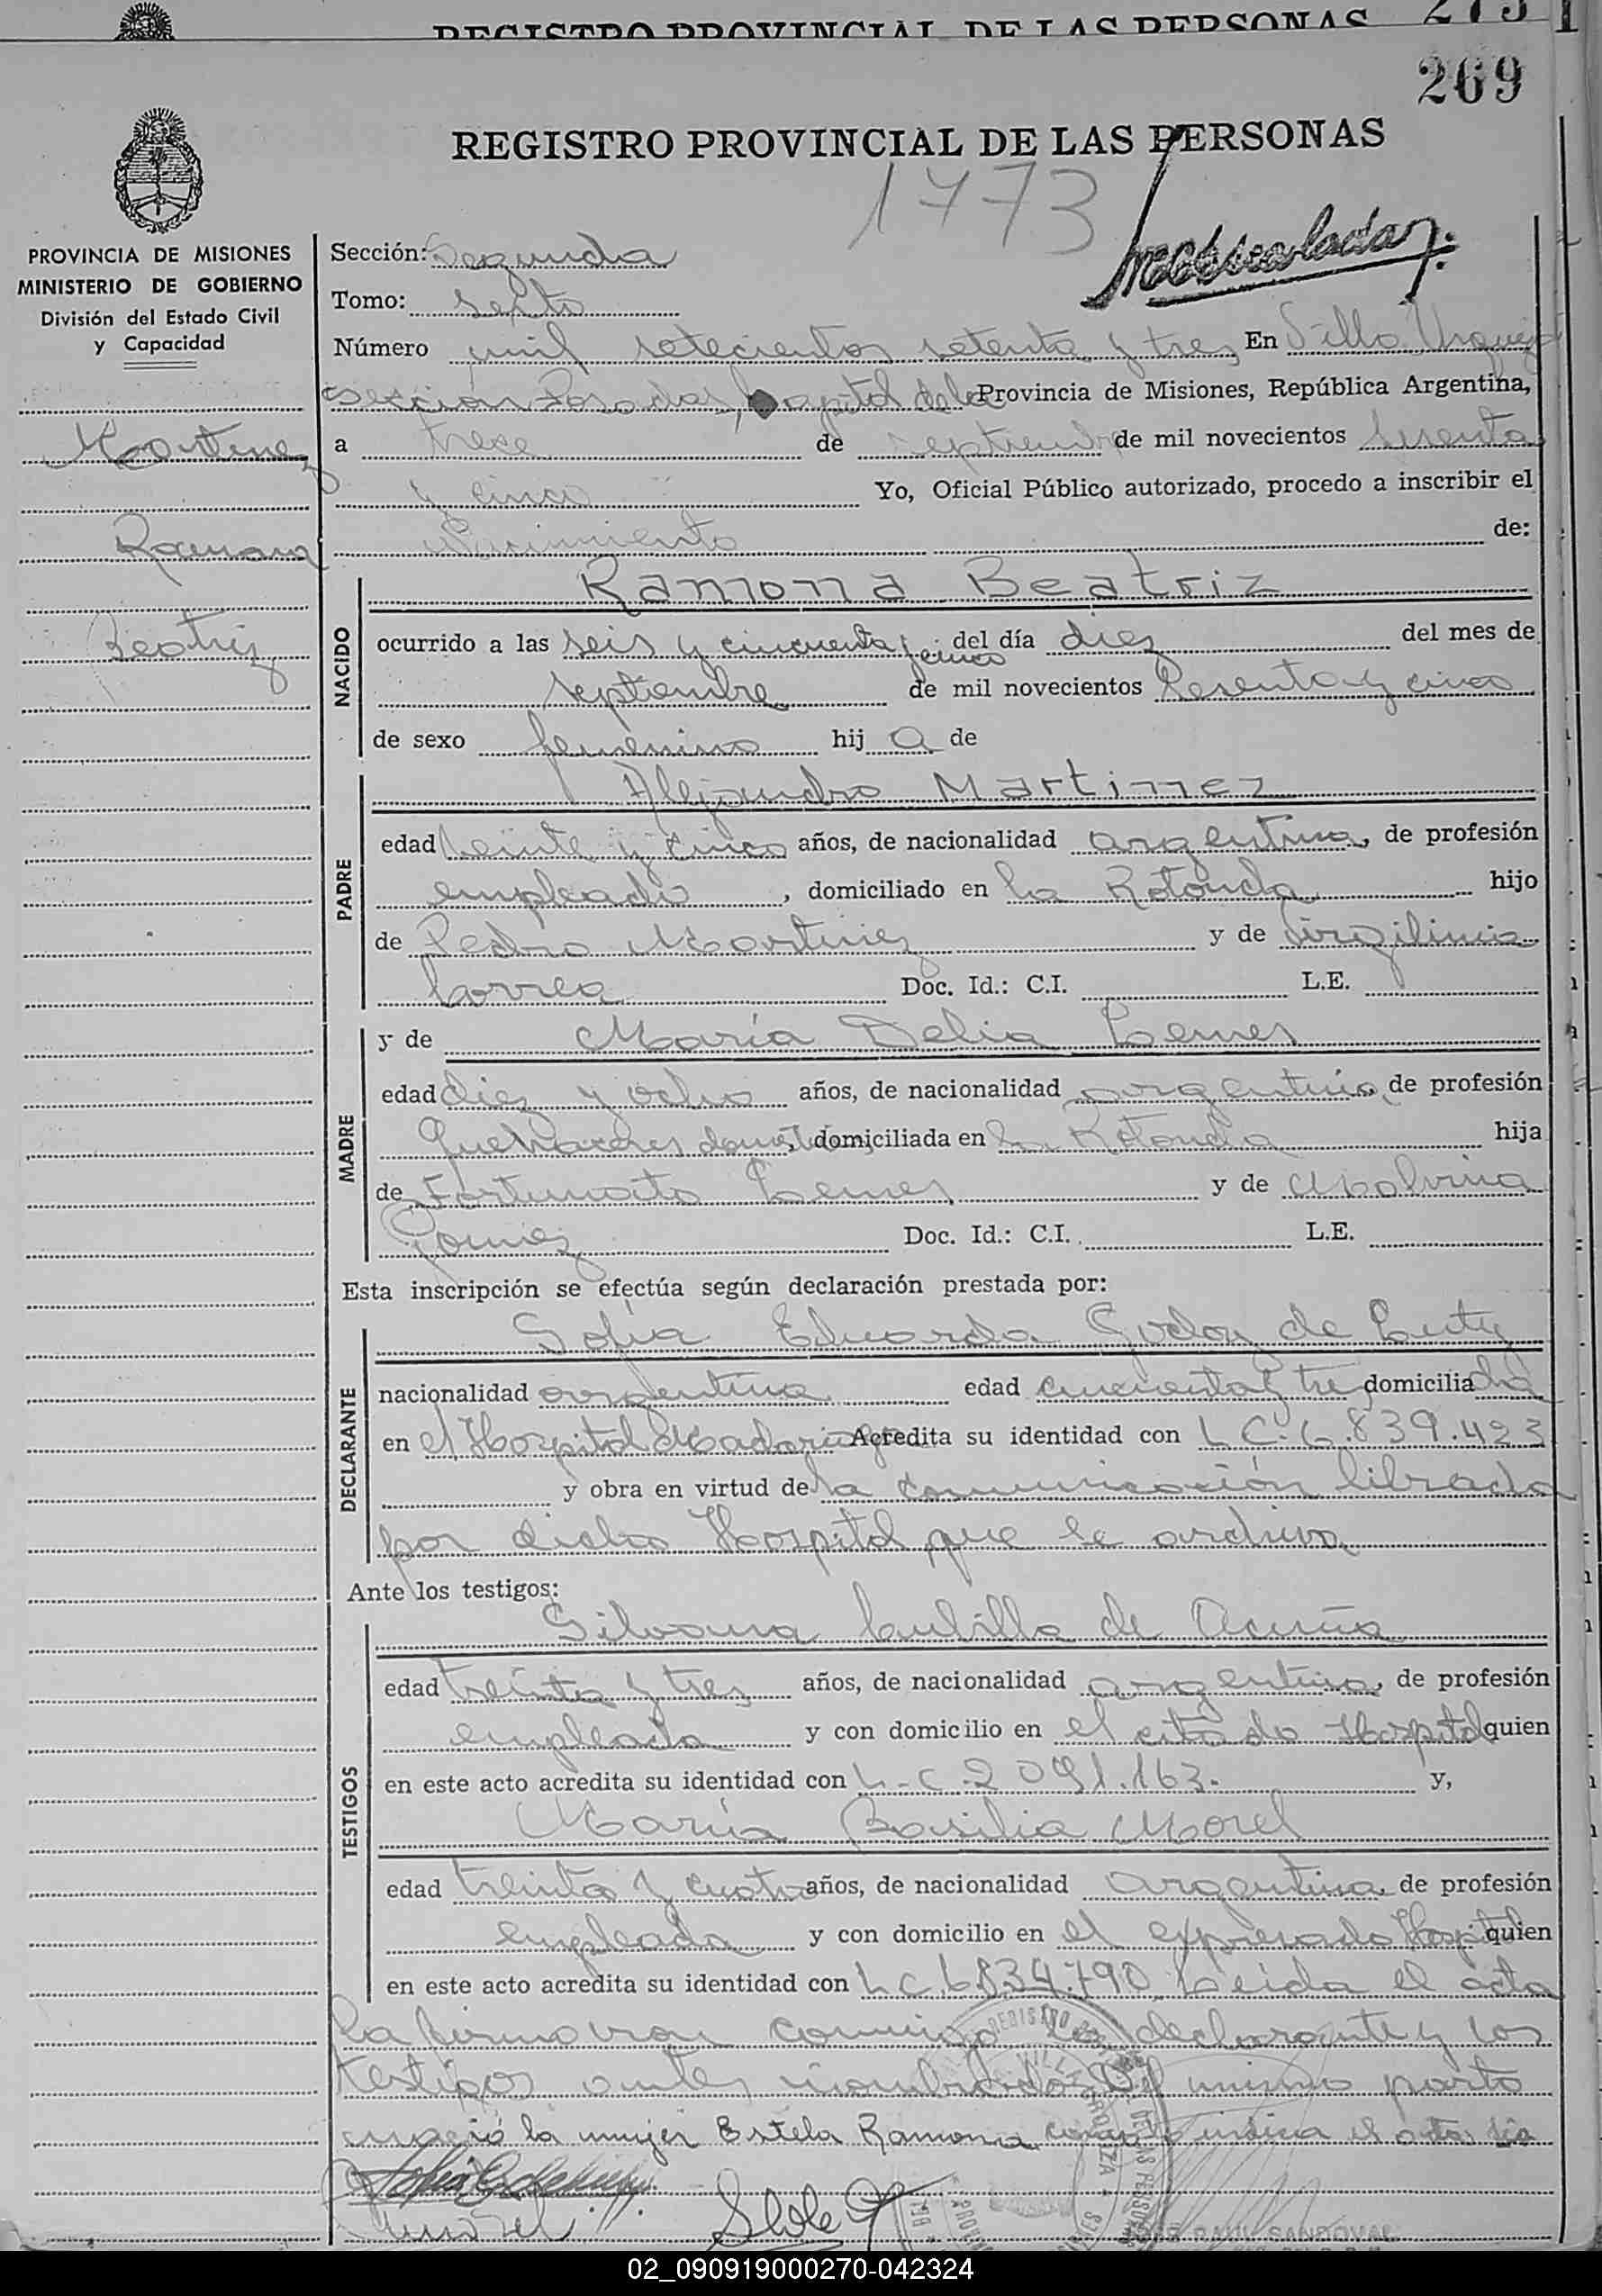 REGISTRO PROVINCIAL DE LAS PERSONAS 273
269
REGISTRO PROVINCIAL DE LAS PERSONAS
1773
PROVINCIA DE MISIONES
MINISTERIO DE GOBIERNO
División del Estado Civil
y Capacidad
Martinez
Ramona
Beatriz
Sección: Segunda
Tomo: sexto
Número mil setecientos setenta y tres En Villa Urquiza
sección Posadas, Capital de la Provincia de Misiones, República Argentina,
a trece de septiembre de mil novecientos sesenta
y cinco Yo, Oficial Público autorizado, procedo a inscribir el
Nacimiento de:
NACIDO
Ramona Beatriz
ocurrido a las seis y cincuenta y cinco del día diez del mes de
septiembre de mil novecientos sesenta y cinco
de sexo femenino hij a de
PADRE
Alejandro Martinez
edad veinte y cinco años, de nacionalidad argentina, de profesión
empleado, domiciliado en La Rotonda hijo
de Pedro Martinez y de Virgilinia
Correa Doc. Id.: C.I. L.E.
MADRE
y de María Delia Lemes
edad diez y ocho años, de nacionalidad argentina, de profesión
Quehaceres domést, domiciliada en La Rotonda hija
de Fortunato Lemes y de Malvina
Gomez Doc. Id.: C.I. L.E.
Esta inscripción se efectúa según declaración prestada por:
DECLARANTE
Sofia Eduarda Godoy de
nacionalidad argentina edad cincuenta y tres domicilia da
en el Hospital Madariaga Acredita su identidad con L C. 6.839.423
y obra en virtud de la comunicación librada
por dicho Hospital que se archiva
Ante los testigos:
TESTIGOS
Silvana Cubilla de Acuña
edad treinta y tres años, de nacionalidad argentina, de profesión
empleada y con domicilio en el citado Hospital quien
en este acto acredita su identidad con L.C. 2 091.163. y,
María Basilia Morel
edad treinta y cuatro años, de nacionalidad argentina, de profesión
empleada y con domicilio en el expresado Hospit quien
en este acto acredita su identidad con L C. 6834.790 Leida el acta
la firmaron conmigo la declarante y los
testigos antes nombrados. Del mismo parto
nació la mujer Estela Ramona indica el acta
RAUL SANDOVAL
02_090919000270-042324